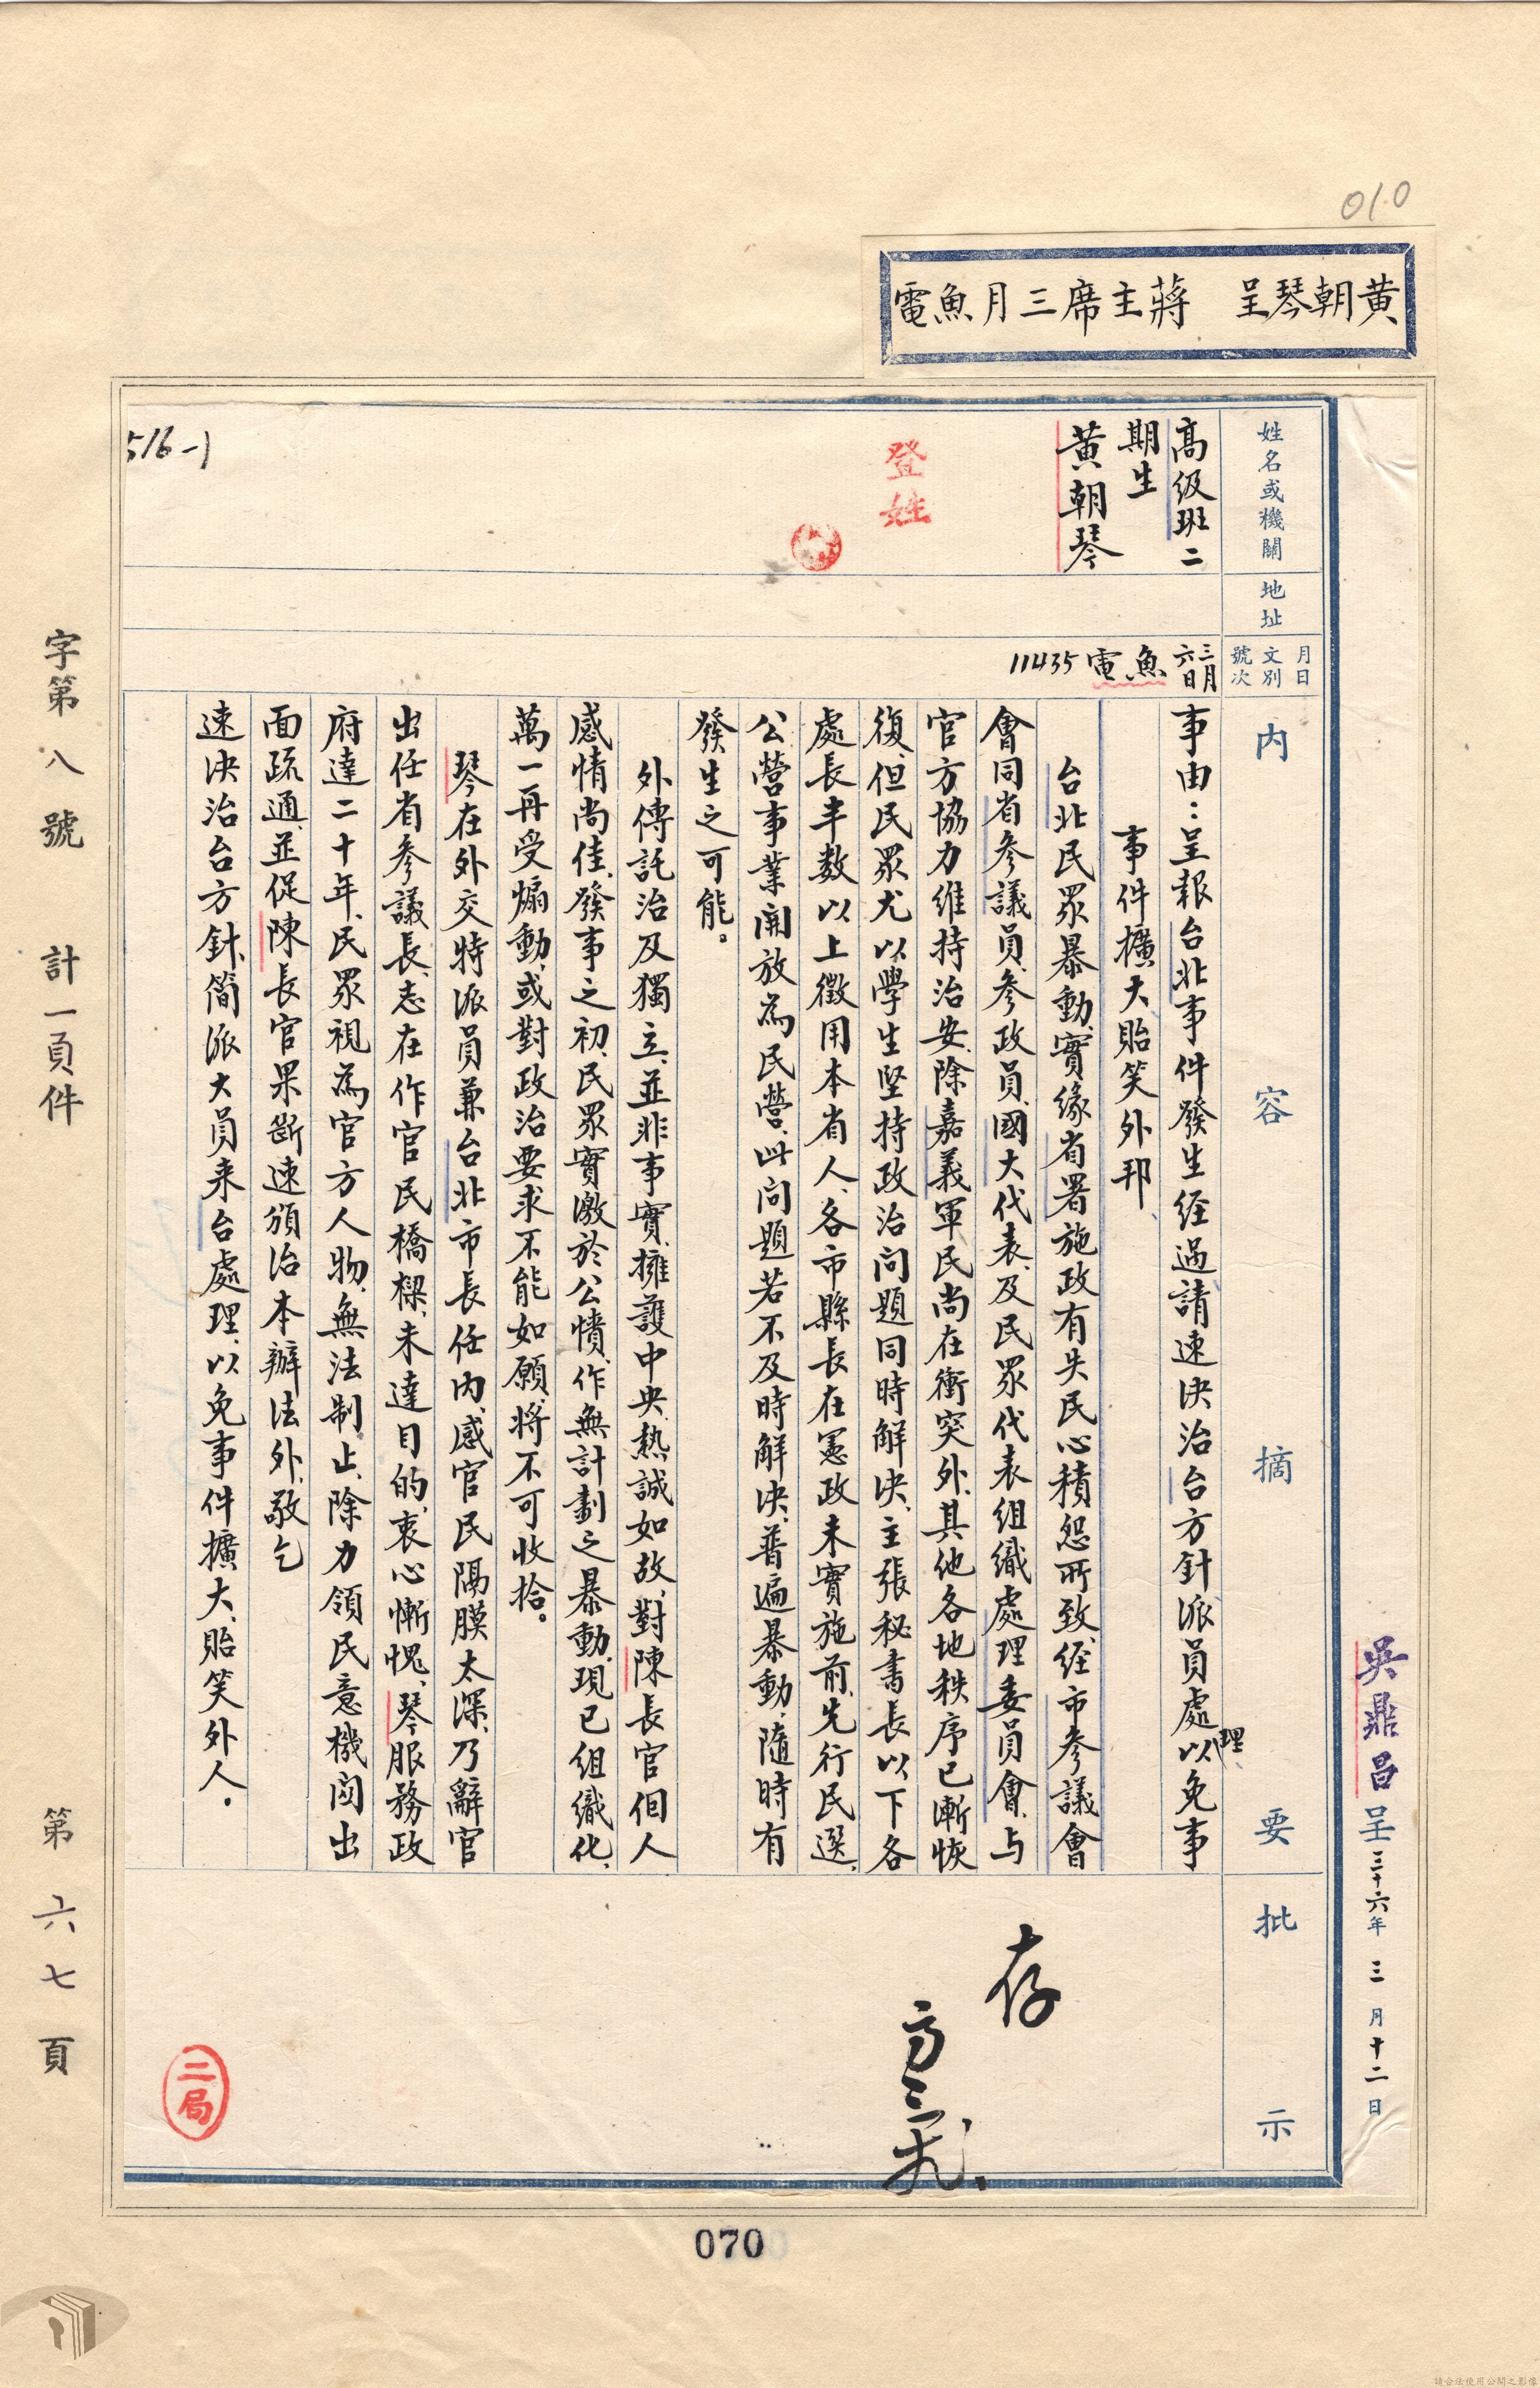 010
黃朝琴呈　蔣主席三月魚電
吳鼎昌呈三十六年三月十二日
姓名或機關
地址
月日
文別
號次
內容摘要
批示
高級班二
期生
黃朝琴
登姓
516-1
三月
六日
魚電
11435
事由：呈報台北事件發生經過請速決治台方針派員處理以免事
事件擴大貽笑外邦
台北民眾暴動、實緣省署施政有失民心積怨所致、經市參議會
會同省參議員、參政員、國大代表、及民眾代表組織處理委員會、与
官方協力維持治安、除嘉義軍民尚在衝突外、其他各地秩序已漸恢
復、但民眾尤以學生堅持政治问題同時解決、主張秘書長以下各
處長半数以上徵用本省人、各市縣長在憲政未實施前、先行民選、
公營事業開放為民營、此问題若不及時解決、普遍暴動、隨時有
發生之可能。
外傳託治及獨立、並非事實、擁護中央、熱誠如故、對陳長官個人
感情尚佳、發事之初、民眾實激於公憤、作無計劃之暴動、現已組織化、
萬一再受煽動、或對政治要求不能如願、將不可收拾。
琴在外交特派員兼台北市長任內、感官民隔膜太深、乃辭官
出任省參議長、志在作官民橋樑、未達目的、衷心慚愧、琴服務政
府達二十年、民眾視為官方人物、無法制止、除力領民意機関出
面疏通、並促陳長官果斷速頒治本辦法外、敬乞
速決治台方針、簡派大員来台處理、以免事件擴大、貽笑外人。
存
二局
字第八號　計一頁件　第六七頁
070
請合法使用公開之影像